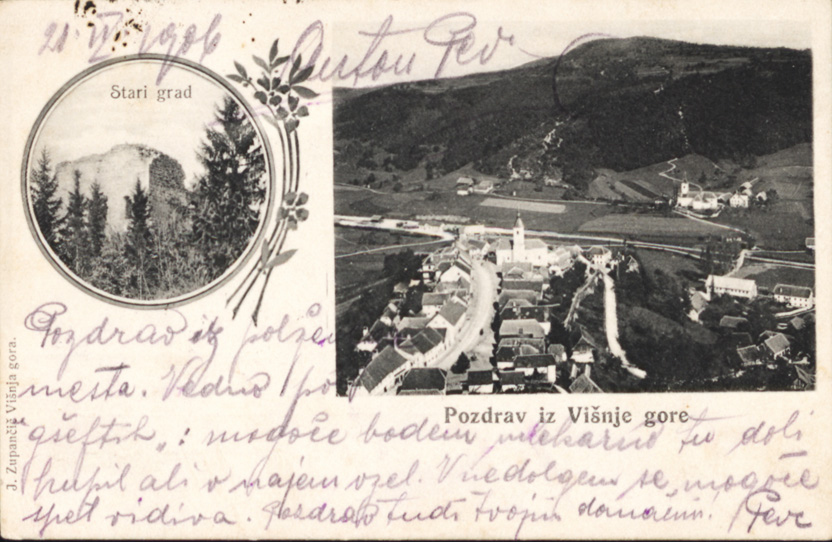 21. IV. 1906 Anton Pevc
Stari grad
Pozdrav iz Višnje gore
J. Zupančič Višnja gora.
Pozdrav iz
mesta. Vedno po
"gšeftih": mogoče bodem mlekarno tu doli
kupil ali v najem vzel. V nedolgem se mogoče
spet vidiva. Pozdrav tudi tvojim domačim. Pevc